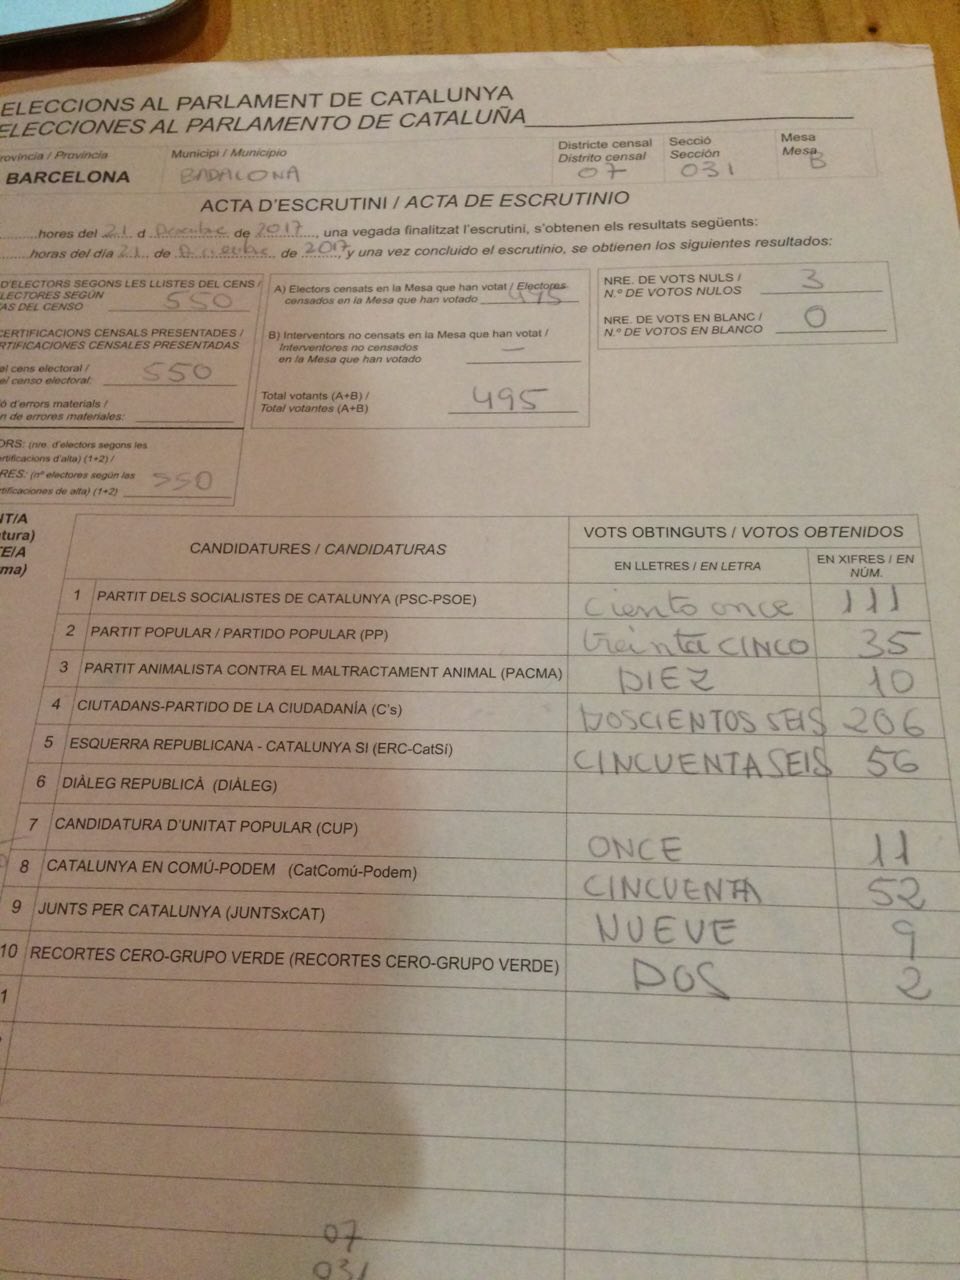 ELECCIONS AL PARLAMENT DE CATALUNYA
ELECCIONES AL PARLAMENTO DE CATALUÑA
Província / Provincia
BARCELONA
Municipi / Municipio
BADALONA
Districte censal
Distrito censal
07
Secció
Sección
031
Mesa
Mesa
B
ACTA D'ESCRUTINI / ACTA DE ESCRUTINIO
hores del 21 d de 2017, una vegada finalitzat l'escrutini, s'obtenen els resultats següents:
horas del día 21 de de 2017, y una vez concluido el escrutinio, se obtienen los siguientes resultados:
D'ELECTORS SEGONS LES LLISTES DEL CENS /
ELECTORES SEGÚN
AS DEL CENSO 550
CERTIFICACIONS CENSALS PRESENTADES /
RTIFICACIONES CENSALES PRESENTADAS
al cens electoral /
el censo electoral: 550
ó d'errors materials /
n de errores materiales:
ORS: (nre. d'electors segons les
ertificacions d'alta) (1+2) /
RES: (nº electores según las
tificaciones de alta) (1+2) 550
A) Electors censats en la Mesa que han votat / Electores
censados en la Mesa que han votado 495
B) Interventors no censats en la Mesa que han votat /
Interventores no censados
en la Mesa que han votado —
Total votants (A+B) /
Total votantes (A+B) 495
NRE. DE VOTS NULS /
N.º DE VOTOS NULOS 3
NRE. DE VOTS EN BLANC /
N.º DE VOTOS EN BLANCO 0
NT/A
tura)
TE/A
ma)
CANDIDATURES / CANDIDATURAS
VOTS OBTINGUTS / VOTOS OBTENIDOS
EN LLETRES / EN LETRA
EN XIFRES / EN
NÚM.
1 PARTIT DELS SOCIALISTES DE CATALUNYA (PSC-PSOE) Ciento once 111
2 PARTIT POPULAR / PARTIDO POPULAR (PP) treinta CINCO 35
3 PARTIT ANIMALISTA CONTRA EL MALTRACTAMENT ANIMAL (PACMA) DIEZ 10
4 CIUTADANS-PARTIDO DE LA CIUDADANÍA (C's) DOSCIENTOS SEIS 206
5 ESQUERRA REPUBLICANA - CATALUNYA SI (ERC-CatSí) CINCUENTA SEIS 56
6 DIÀLEG REPUBLICÀ (DIÀLEG)
7 CANDIDATURA D'UNITAT POPULAR (CUP) ONCE 11
8 CATALUNYA EN COMÚ-PODEM (CatComú-Podem) CINCUENTA 52
9 JUNTS PER CATALUNYA (JUNTSxCAT) NUEVE 9
10 RECORTES CERO-GRUPO VERDE (RECORTES CERO-GRUPO VERDE) DOS 2
1
07
031